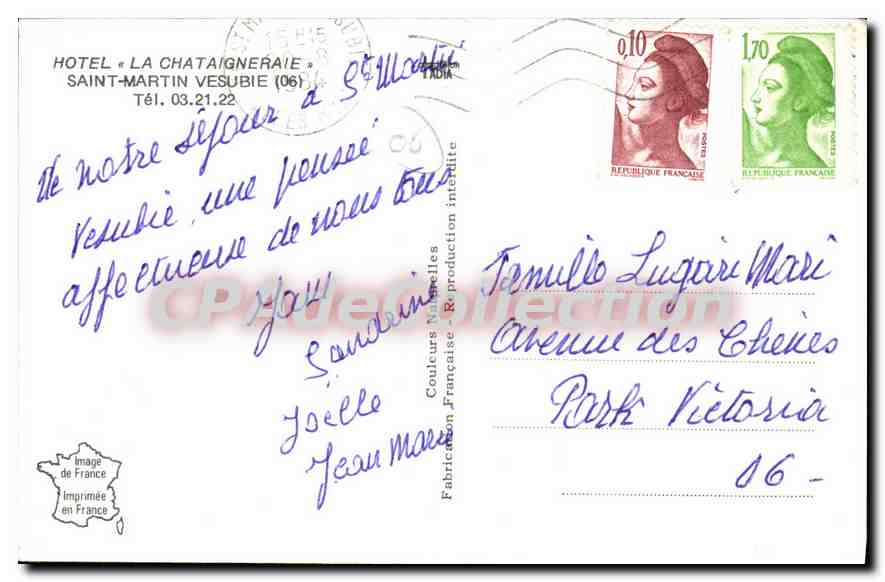 HOTEL « LA CHATAIGNERAIE »
SAINT-MARTIN VESUBIE (06)
Tél. 03.21.22
De notre séjour à St Martin
Vesubie, une pensée
affectueuse de nous tous
Sandrine
Joëlle
Jean Marie
06
Couleurs Naturelles
Fabrication Française - Reproduction interdite
Image
de France
Imprimée
en France
0,10
POSTES
REPUBLIQUE FRANÇAISE
1,70
POSTES
REPUBLIQUE FRANÇAISE
Famille Mari
Avenue des Chênes
Park Victoria
06 -
CPADeCollection